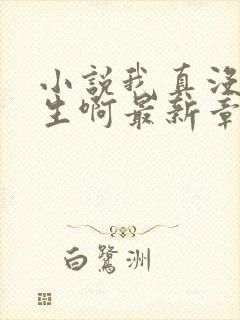 小說我真沒
生啊最新章
白鷺洲